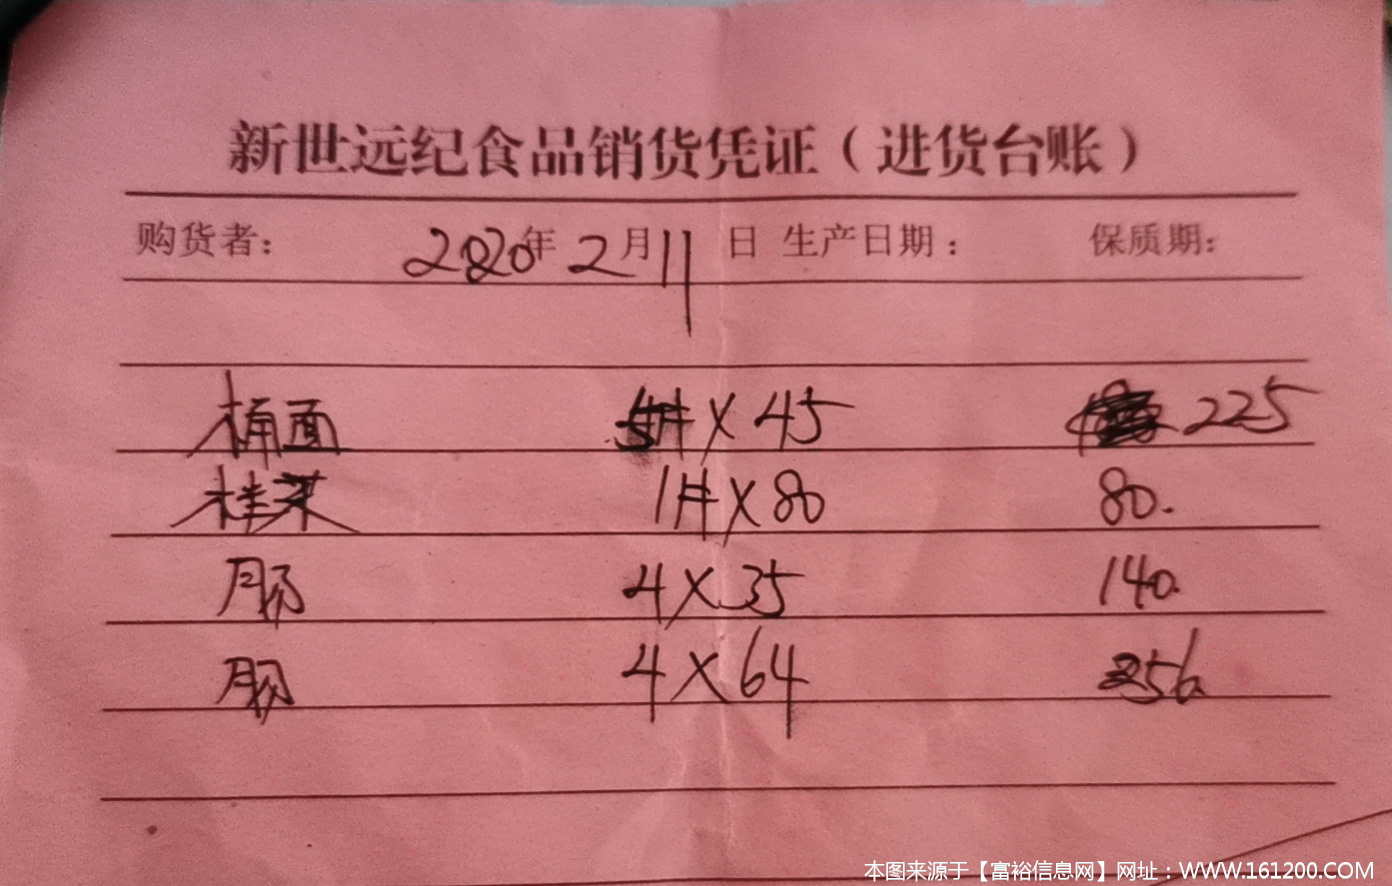 新世远纪食品销货凭证（进货台账）
购货者： 2020年 2月11日 生产日期： 保质期：
桶面 5件 X 45 225
桂菜 1件 X 80 80.
肠 4 X 35 140.
肠 4 X 64 256.
本图来源于【富裕信息网】网址：WWW.161200.COM